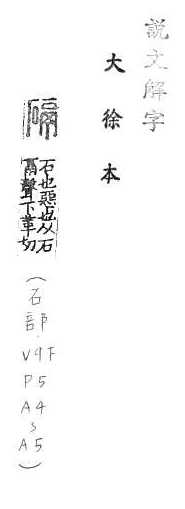 說文解字
大徐本
䃒
石也惡也从石
鬲聲下革切
(石部.V9下
P5
A4
~
A5)